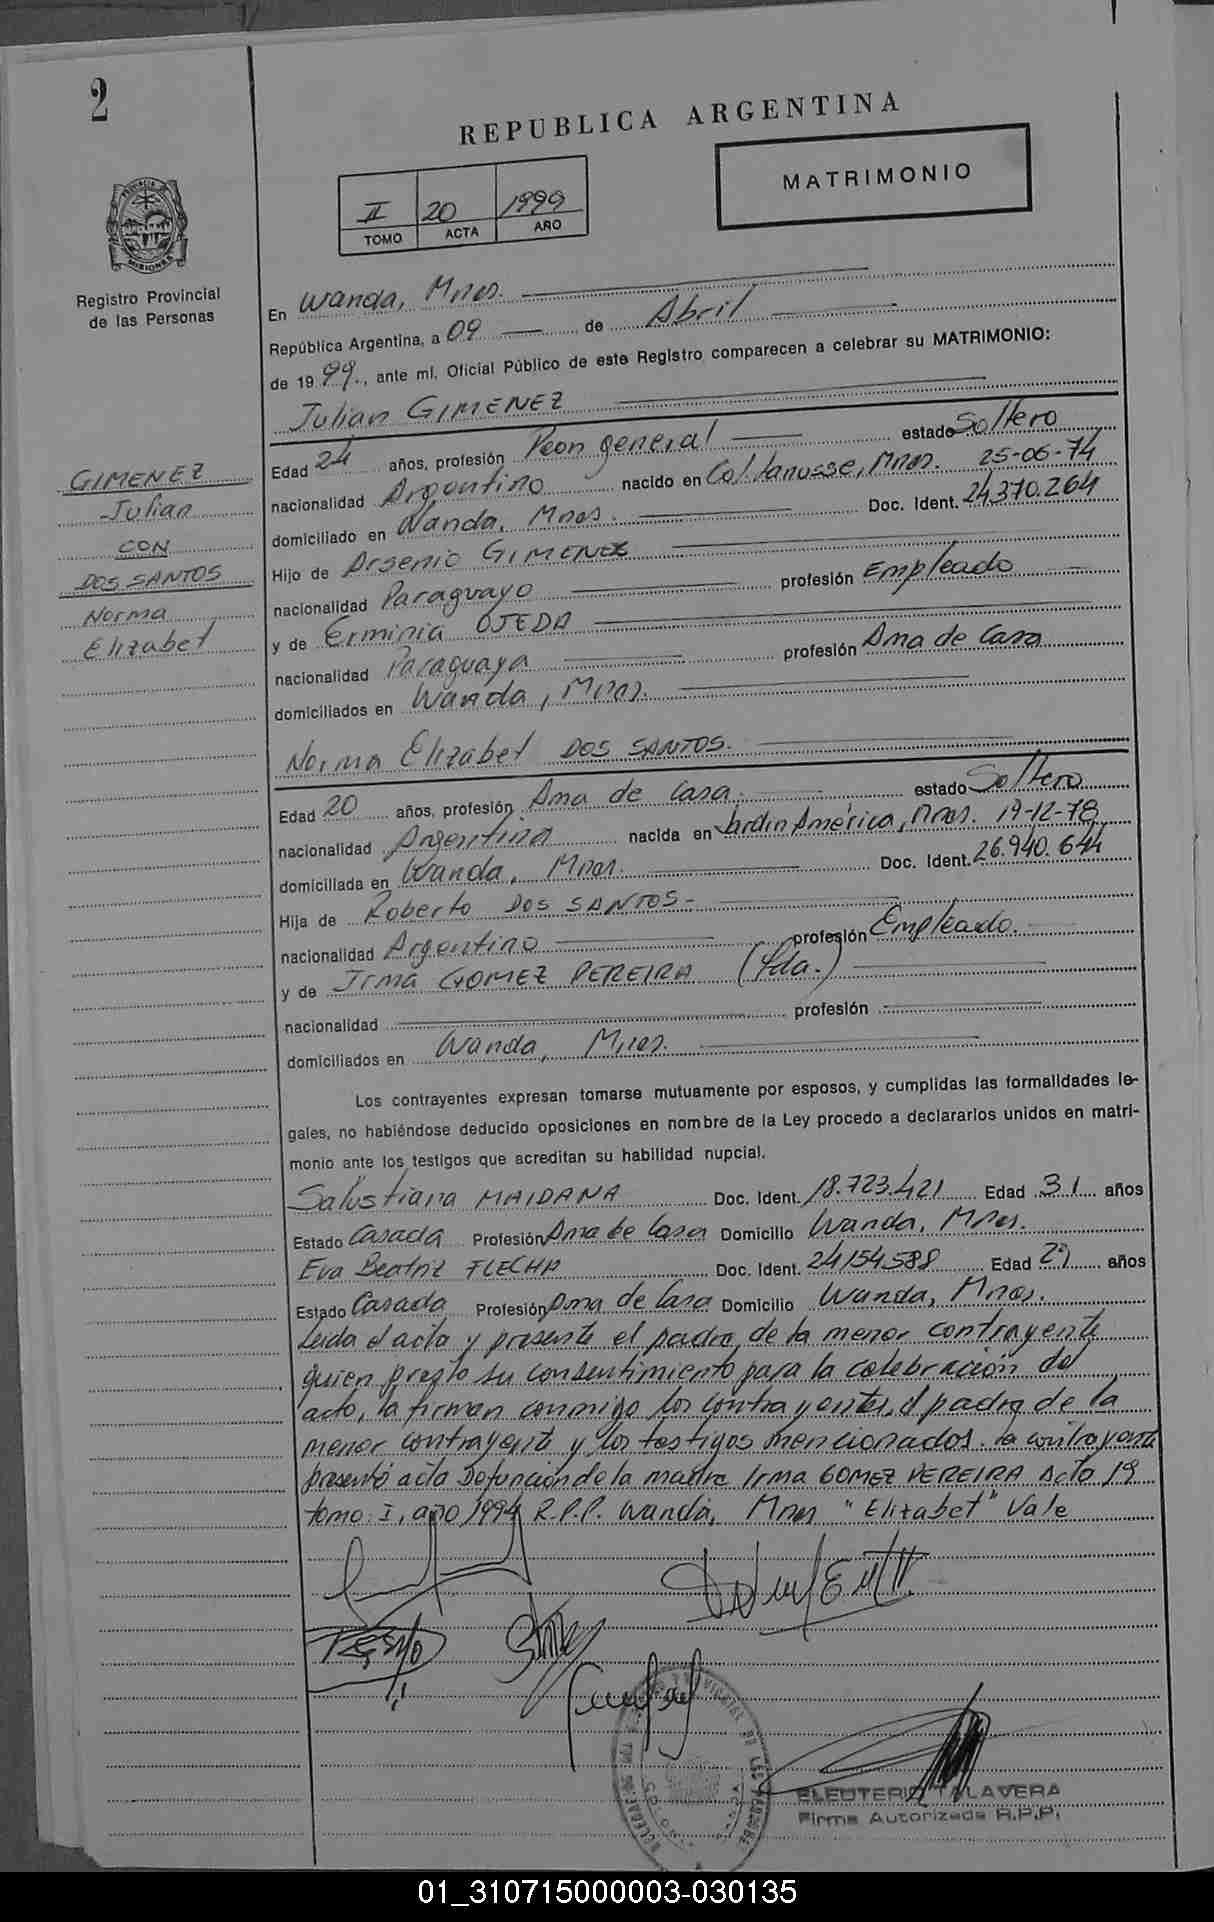 2
REPUBLICA ARGENTINA
II 20 1999
TOMO ACTA AÑO
MATRIMONIO
PROVINCIA DE
MISIONES
Registro Provincial
de las Personas
En Wanda, Mnes.
República Argentina, a 09 de Abril
de 1999., ante mí, Oficial Público de este Registro comparecen a celebrar su MATRIMONIO:
Julian GIMENEZ
GIMENEZ
Julian
CON
DOS SANTOS
Norma
Elizabet
Edad 24 años, profesión Peon general estado Soltero
nacionalidad Argentino nacido en Col. Lanusse, Mnes. 25-06-74
domiciliado en Wanda, Mnes. Doc. Ident. 24.370.264
Hijo de Arsenio GIMENEZ
nacionalidad Paraguayo profesión Empleado
y de Erminia OJEDA
nacionalidad Paraguaya profesión Ama de Casa
domiciliados en Wanda, Mnes.
Norma Elizabet DOS SANTOS.
Edad 20 años, profesión Ama de Casa. estado Soltera
nacionalidad Argentina nacida en Jardín América, Mnes. 19-12-78
domiciliada en Wanda, Mnes. Doc. Ident. 26.940.644
Hija de Roberto DOS SANTOS-
nacionalidad Argentino profesión Empleado.
y de Irma GOMEZ PEREIRA (fda.)
nacionalidad profesión
domiciliados en Wanda, Mnes.
Los contrayentes expresan tomarse mutuamente por esposos, y cumplidas las formalidades le-
gales, no habiéndose deducido oposiciones en nombre de la Ley procedo a declararlos unidos en matri-
monio ante los testigos que acreditan su habilidad nupcial.
Salustiana MAIDANA Doc. Ident. 18.723.421 Edad 31 años
Estado Casada Profesión Ama de Casa Domicilio Wanda, Mnes.
Eva Beatriz FLECHA Doc. Ident. 24154.588 Edad años
Estado Casada Profesión Ama de Casa Domicilio Wanda, Mnes.
Leida el acta y presente el padre de la menor contrayente
quien presto su consentimiento para la celebración del
acto, la firman conmigo los contrayentes, el padre de la
menor contrayente y los testigos mencionados. La contrayente
presentó acta Defunción de la madre Irma GOMEZ PEREIRA Acta 19
tomo: I, año 1994 R.P.P. Wanda, Mnes "Elizabet" Vale
ELEUTERIO TALAVERA
Firma Autorizada R.P.P.
01_310715000003-030135